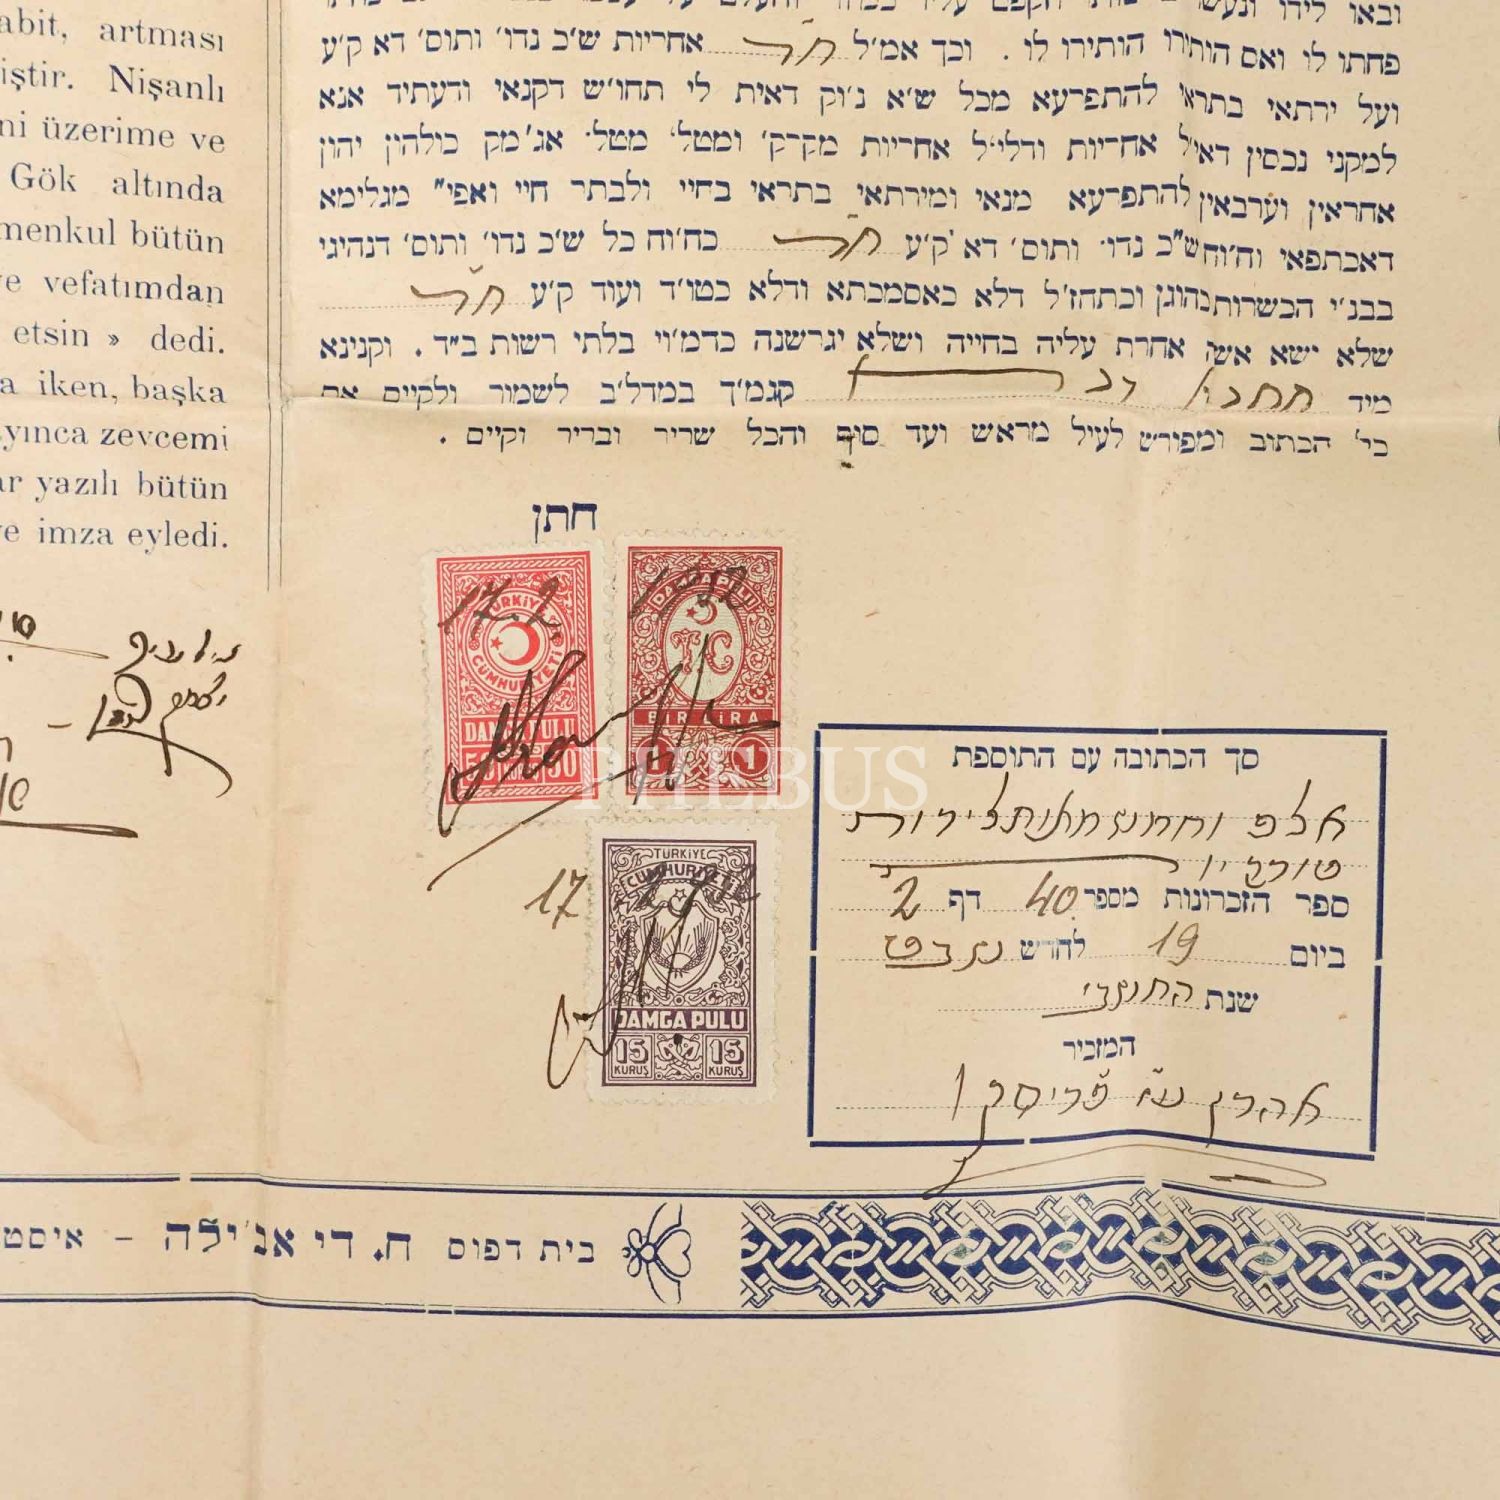 abit, artması
iştir. Nişanlı
ni üzerime ve
Gök altında
menkul bütün
e vefatımdan
etsin » dedi.
a iken, başka
yınca zevcemi
ar yazılı bütün
e imza eyledi.
ובאו לידו
פחתו לו ואם הותירו הותירו לו . וכך אמ׳ל חר׳ אחריות ש׳כ נדו׳ ותוס׳ דא ק׳ע
ועל ירתאי בתראי להתפרעא מכל ש׳א נ׳וק דאית לי תחו׳ש דקנאי ודעתיד אנא
למקני נכסין דאי׳ל אחריות ודלי׳ל אחריות מקרק׳ ומטל׳ מטל׳ אג׳מק כולהון יהון
אחראין וערבאין להתפרעא מנאי ומירתאי בתראי בחיי ולבתר חיי ואפי׳ מגלימא
דאכתפאי וח׳וח ש״כ נדו׳ ותוס׳ דא ק׳ע חר׳ כח׳וח כל ש׳כ נדו׳ ותוס׳ דנהיגי
בבנ׳י הכשרות כהוגן וכתחז׳ל דלא כאסמכתא ודלא כטו׳ד ועוד ק׳ע חר׳
שלא ישא אשה אחרת עליה בחייה ושלא יגרשנה כדמ׳וי בלתי רשות ב״ד . וקנינא
מיד קגמ׳ך במדל׳ב לשמור ולקיים את
כל הכתוב ומפורש לעיל מראש ועד סוף והכל שריר ובריר וקיים .
חתן
17.2. 1952
TÜRKİYE CÜMHURİYETİ
DAMGA PULU
50 50
DAMGA PULU
TC
BİR LİRA
1 1
17 2 952
TÜRKİYE
CÜMHURİYETİ
DAMGA PULU
15 KURUŞ 15 KURUŞ
PHEBUS
סך הכתובה עם התוספת
אלף וחמש מאות לירות
טורקיו
ספר הזכרונות מספר 40 דף 2
ביום 19 לחדש שבט
שנת התשבי
המזכיר
אהרן
בית דפוס ח. די אנ׳ילה – איסט